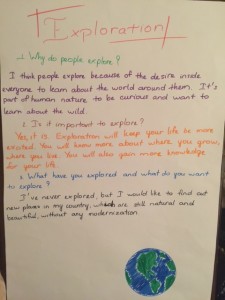 Exploration!
1. Why do people explore?
I think people explore because of the desire inside
everyone to learn about the world around them. It's
part of human nature to be curious and want to
learn about the wild.
2. Is it important to explore?
Yes, it is. Exploration will keep your life be more
excited. You will know more about where you grow,
where you live. You will also gain more knowledge
for your life.
3. What have you explored and what do you want
to explore?
I've never explored, but I would like to find out
new places in my country, which are still natural and
beautiful, without any modernisation